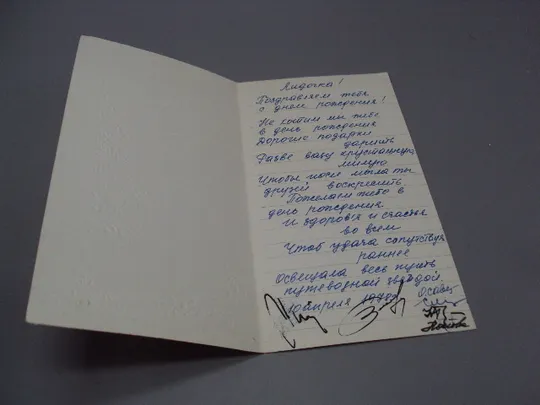 Лидочка!
Поздравляем тебя
с днем рождения!
Не хотим мы тебе
в день рождения
Дорогие подарки
дарить
Разве вазу хрустальную,
милую
Чтобы после могла ты
друзей воскресить.
Пожелаем тебе в
день рождения
И здоровья и счастья
во всем
Чтоб удача сопутствуя
раннее
Освещала весь путь
путеводной звездой.
апреля